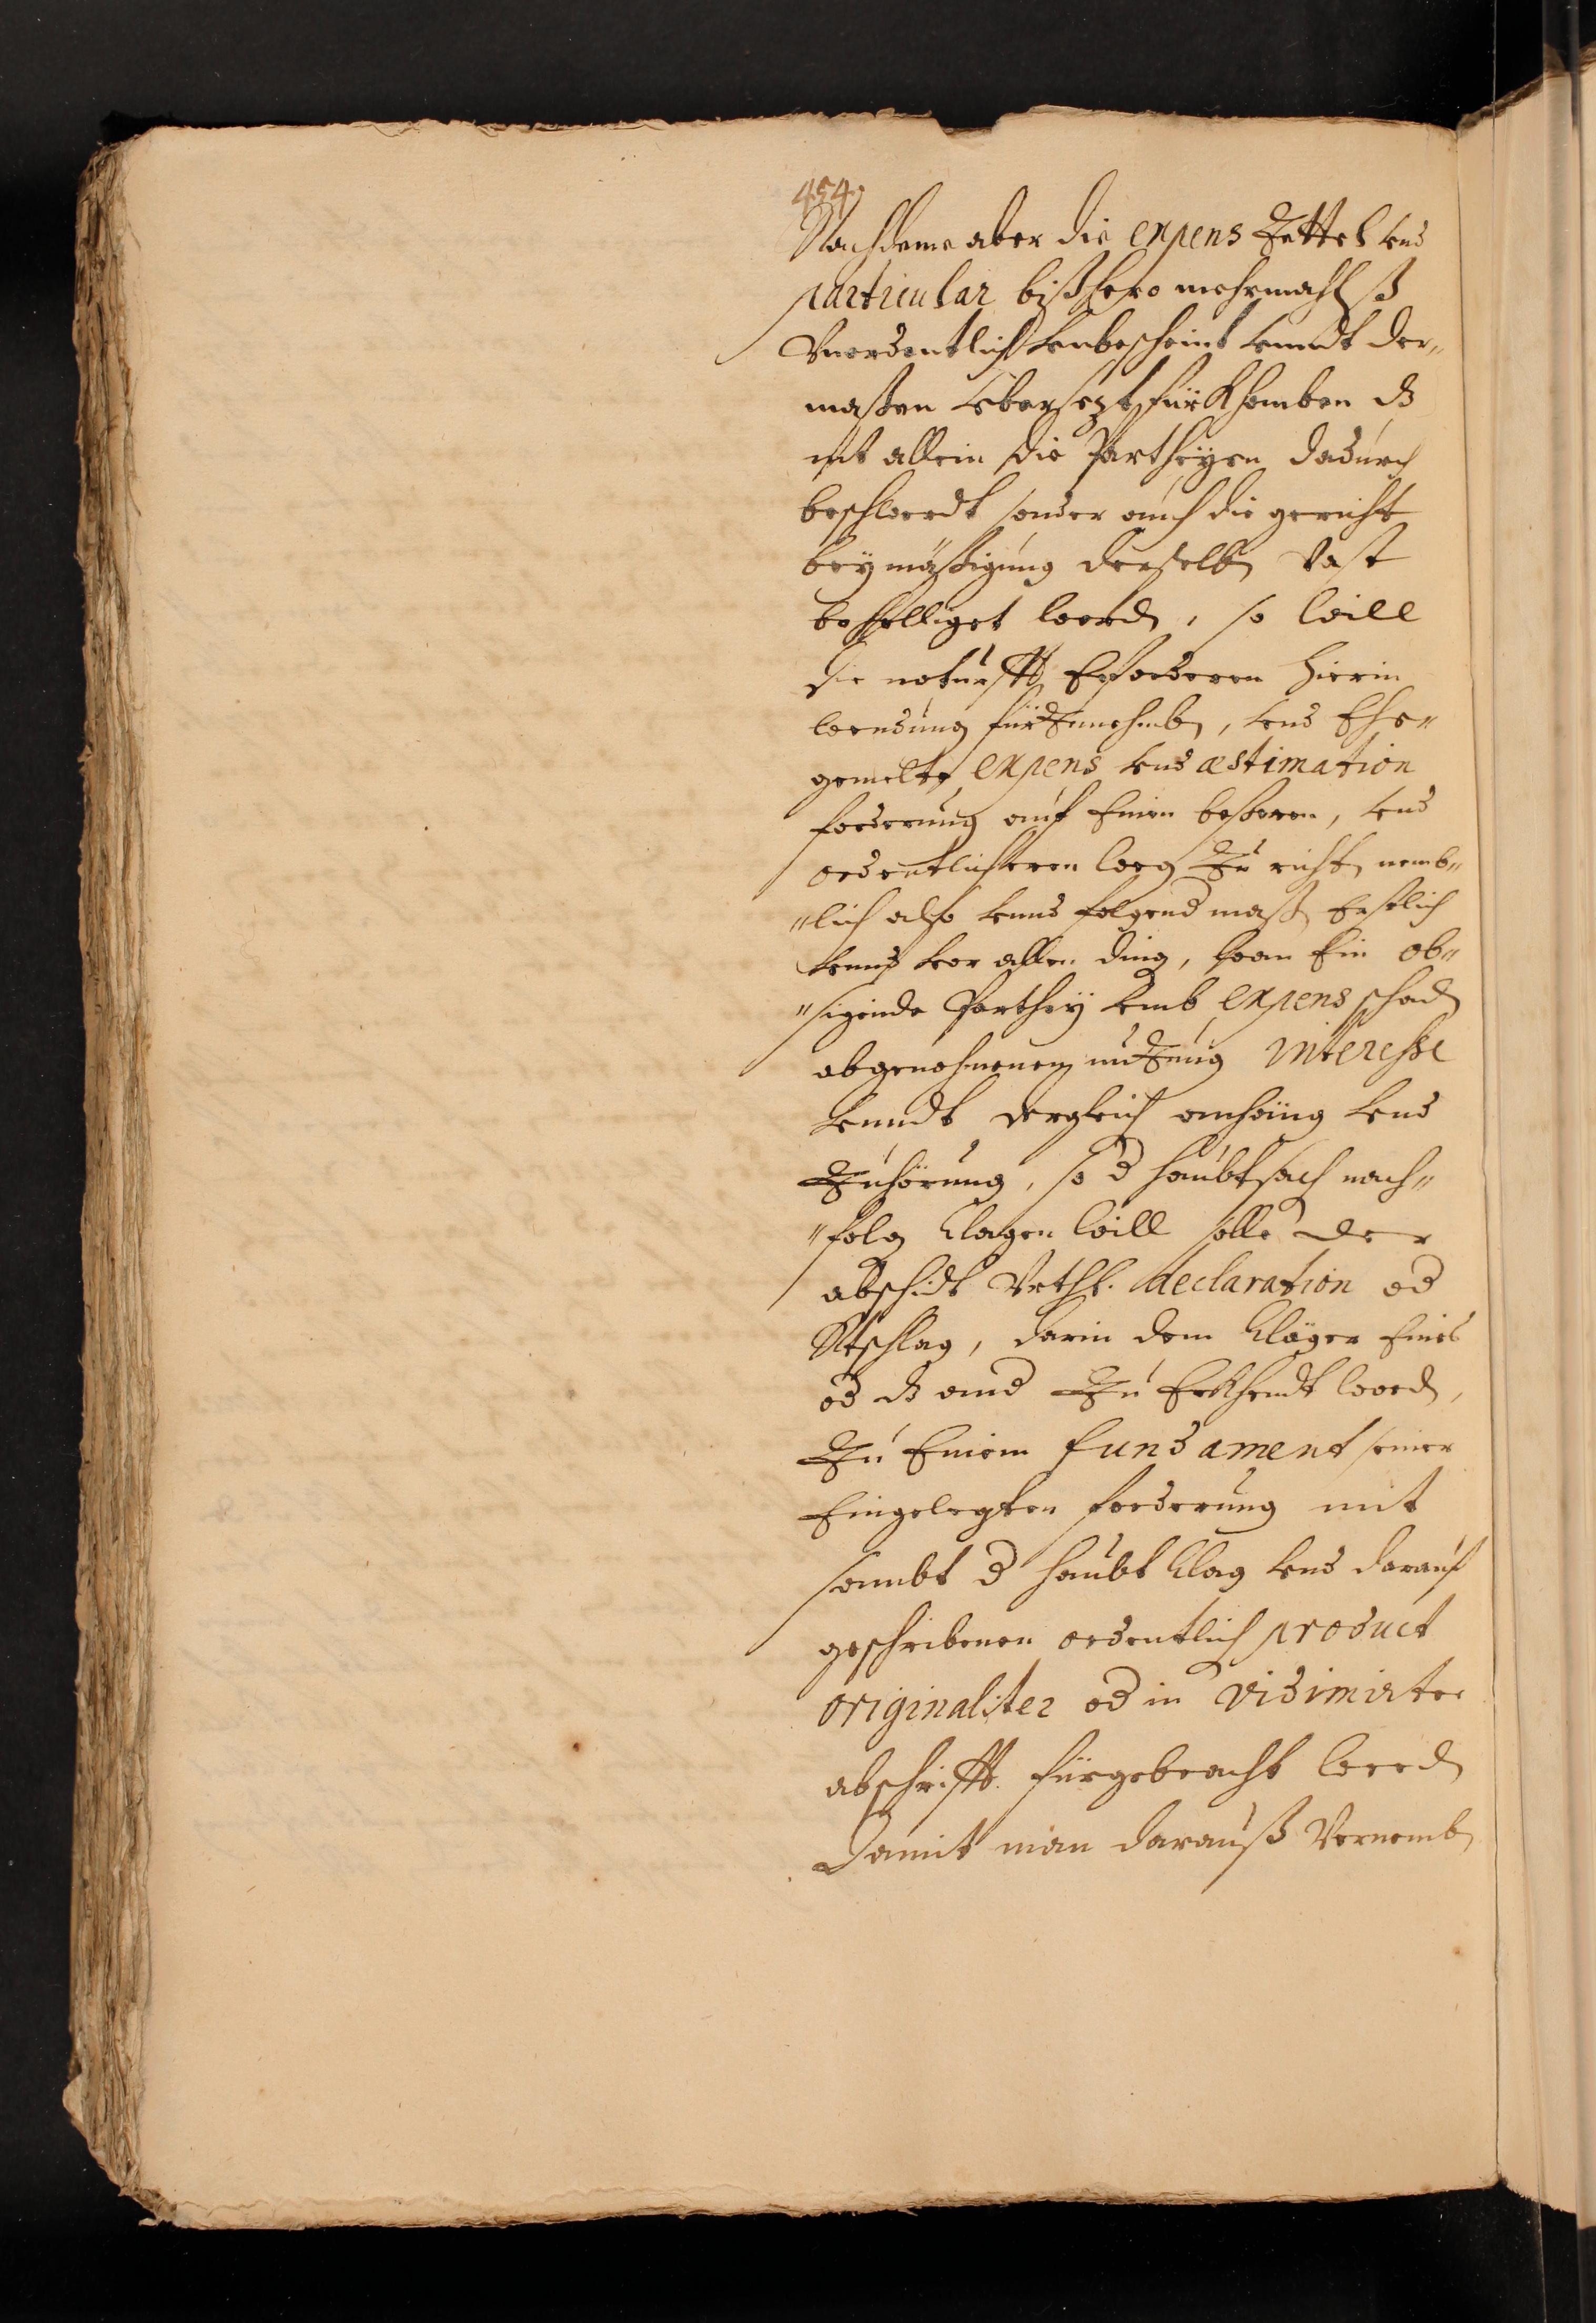 454
Nachdeme aber die expens Zettel vnd
particular bißhero mehrmahlß
Vnordentlich vnbescheint vnndt der„
maßen vbersezt fürkhomben dz
nit allein die Partheyen dadurch
beschwerdt sonder auch die gericht
bey mäßigung derselben vast
behelliget werden, so will
die noturfft erforderen hierin
wendung fürZunehmben, vnd Ehe„
gemelte expens vnd æstimation
forderung auf Einen besseren, vnd
ordentlicheren weg Zu richten nemb„
„lich also vnnd folgend maß Erstlich
vnnd vor allen ding, wan Ein ob„
„sigende Parthey vmb expens schaden
abgenohmenen nuZung Interesse
vnndt dergleich anhäng vnd
Zuhörung, so d haubtsach nach„
„folg klagen will solle der
abschidt Vrthl. declaration od
Rtschlag, darin dem kläger Eines
od dz and Zu Erkhendt worden,
Zu Einem fundament seiner
Eingelegten forderung mit
sambt d haubt klag vnd darauf
geschribenen ordentlich product
originaliter od in vidimirter
abschrifft. fürgebracht werden
Damit man darauß Vernemben